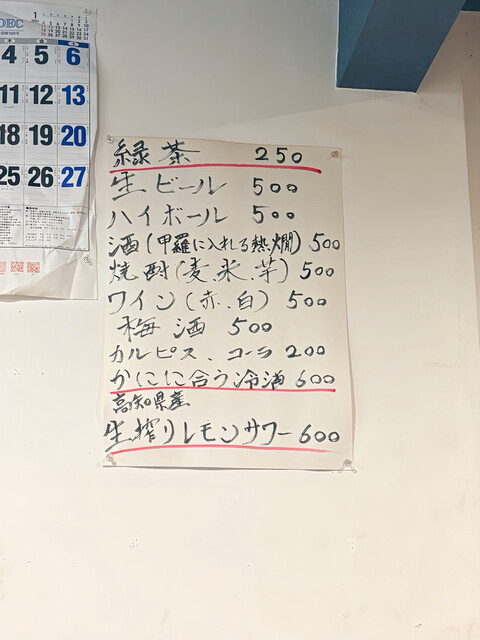 DEC
1
4 5 6
11 12 13
18 19 20
25 26 27
緑茶 250
生ビール 500
ハイボール 500
酒(甲羅に入れる熱燗) 500
焼酎(麦、米、芋) 500
ワイン(赤、白) 500
梅酒 500
カルピス、コーラ 200
かにに合う冷酒 600
高知県産
生搾りレモンサワー 600